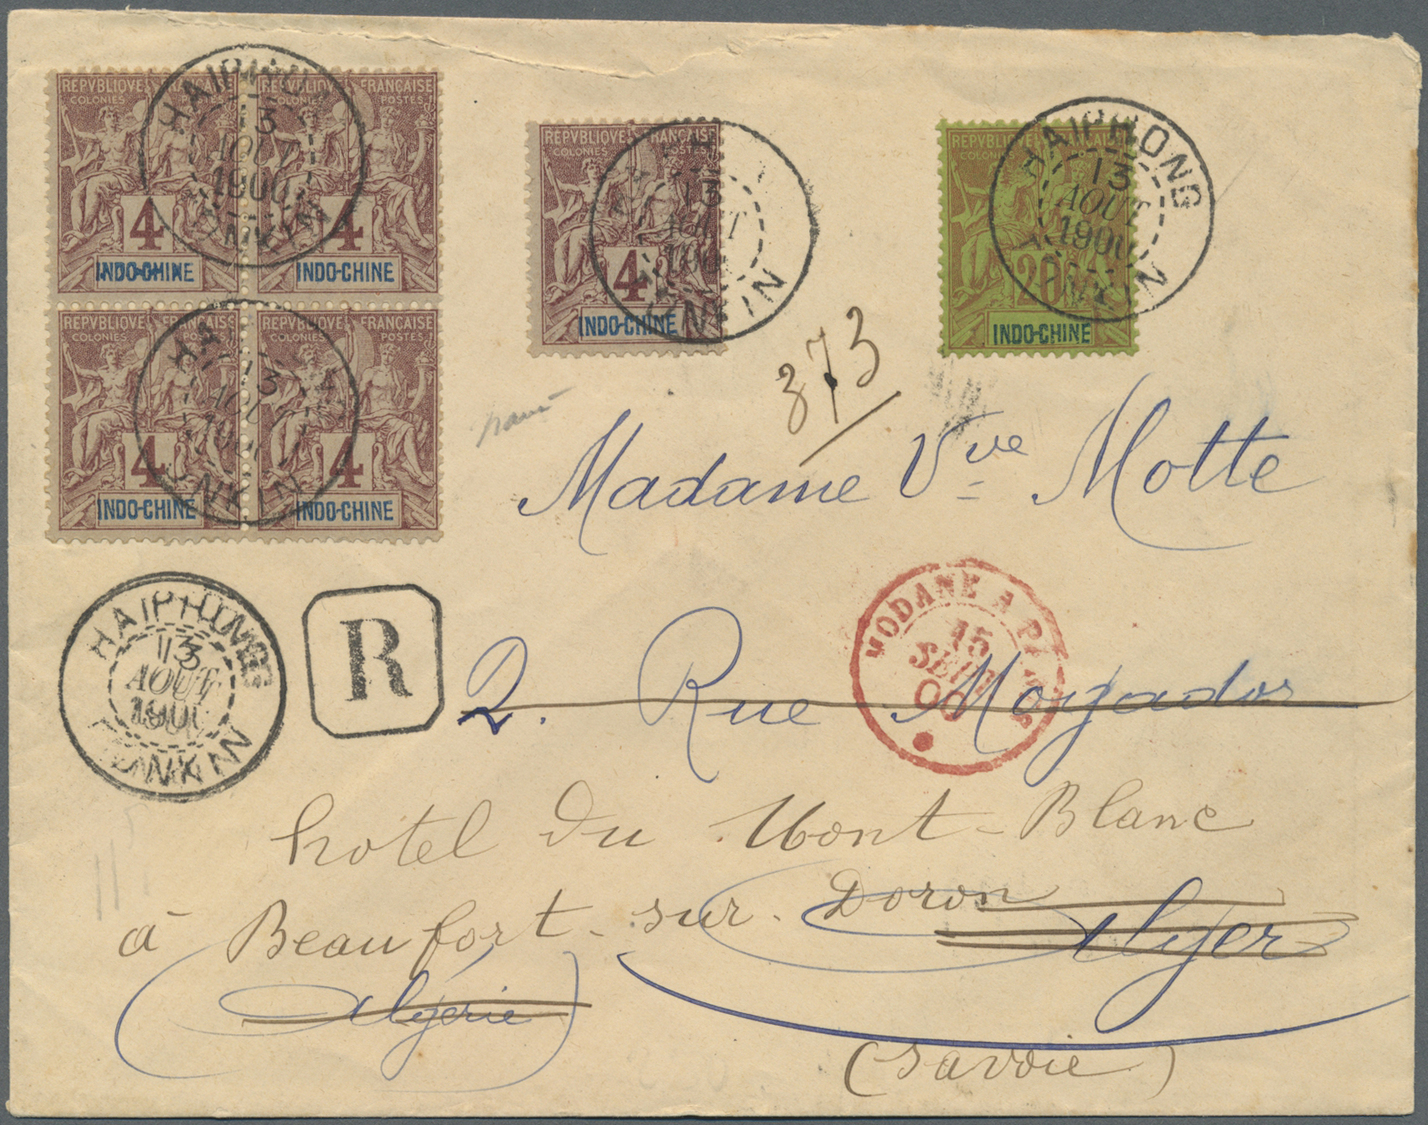 REPVBLIQVE FRANÇAISE
COLONIES POSTES
4
INDO-CHINE
REPVBLIQVE FRANÇAISE
COLONIES POSTES
4
INDO-CHINE
HAIPHONG
13
AOUT
1900
TONKIN
REPVBLIQVE FRANÇAISE
COLONIES POSTES
4
INDO-CHINE
REPVBLIQVE FRANÇAISE
COLONIES POSTES
4
INDO-CHINE
13
AOUT
1900
TONKIN
REPVBLIQVE FRANÇAISE
COLONIES POSTES
4
INDO-CHINE
13
AOUT
TONKIN
20
INDO-CHINE
HAIPHONG
13
AOUT
1900
TONKIN
373
Madame Vve Motte
HAIPHONG
13
AOUT
1900
TONKIN
R
MODANE A PARIS
15
SEPT
00
2. Rue Mogador
hotel du Mont-Blanc
à Beaufort-sur-Doron
Alger
(Algérie)
(Savoie)